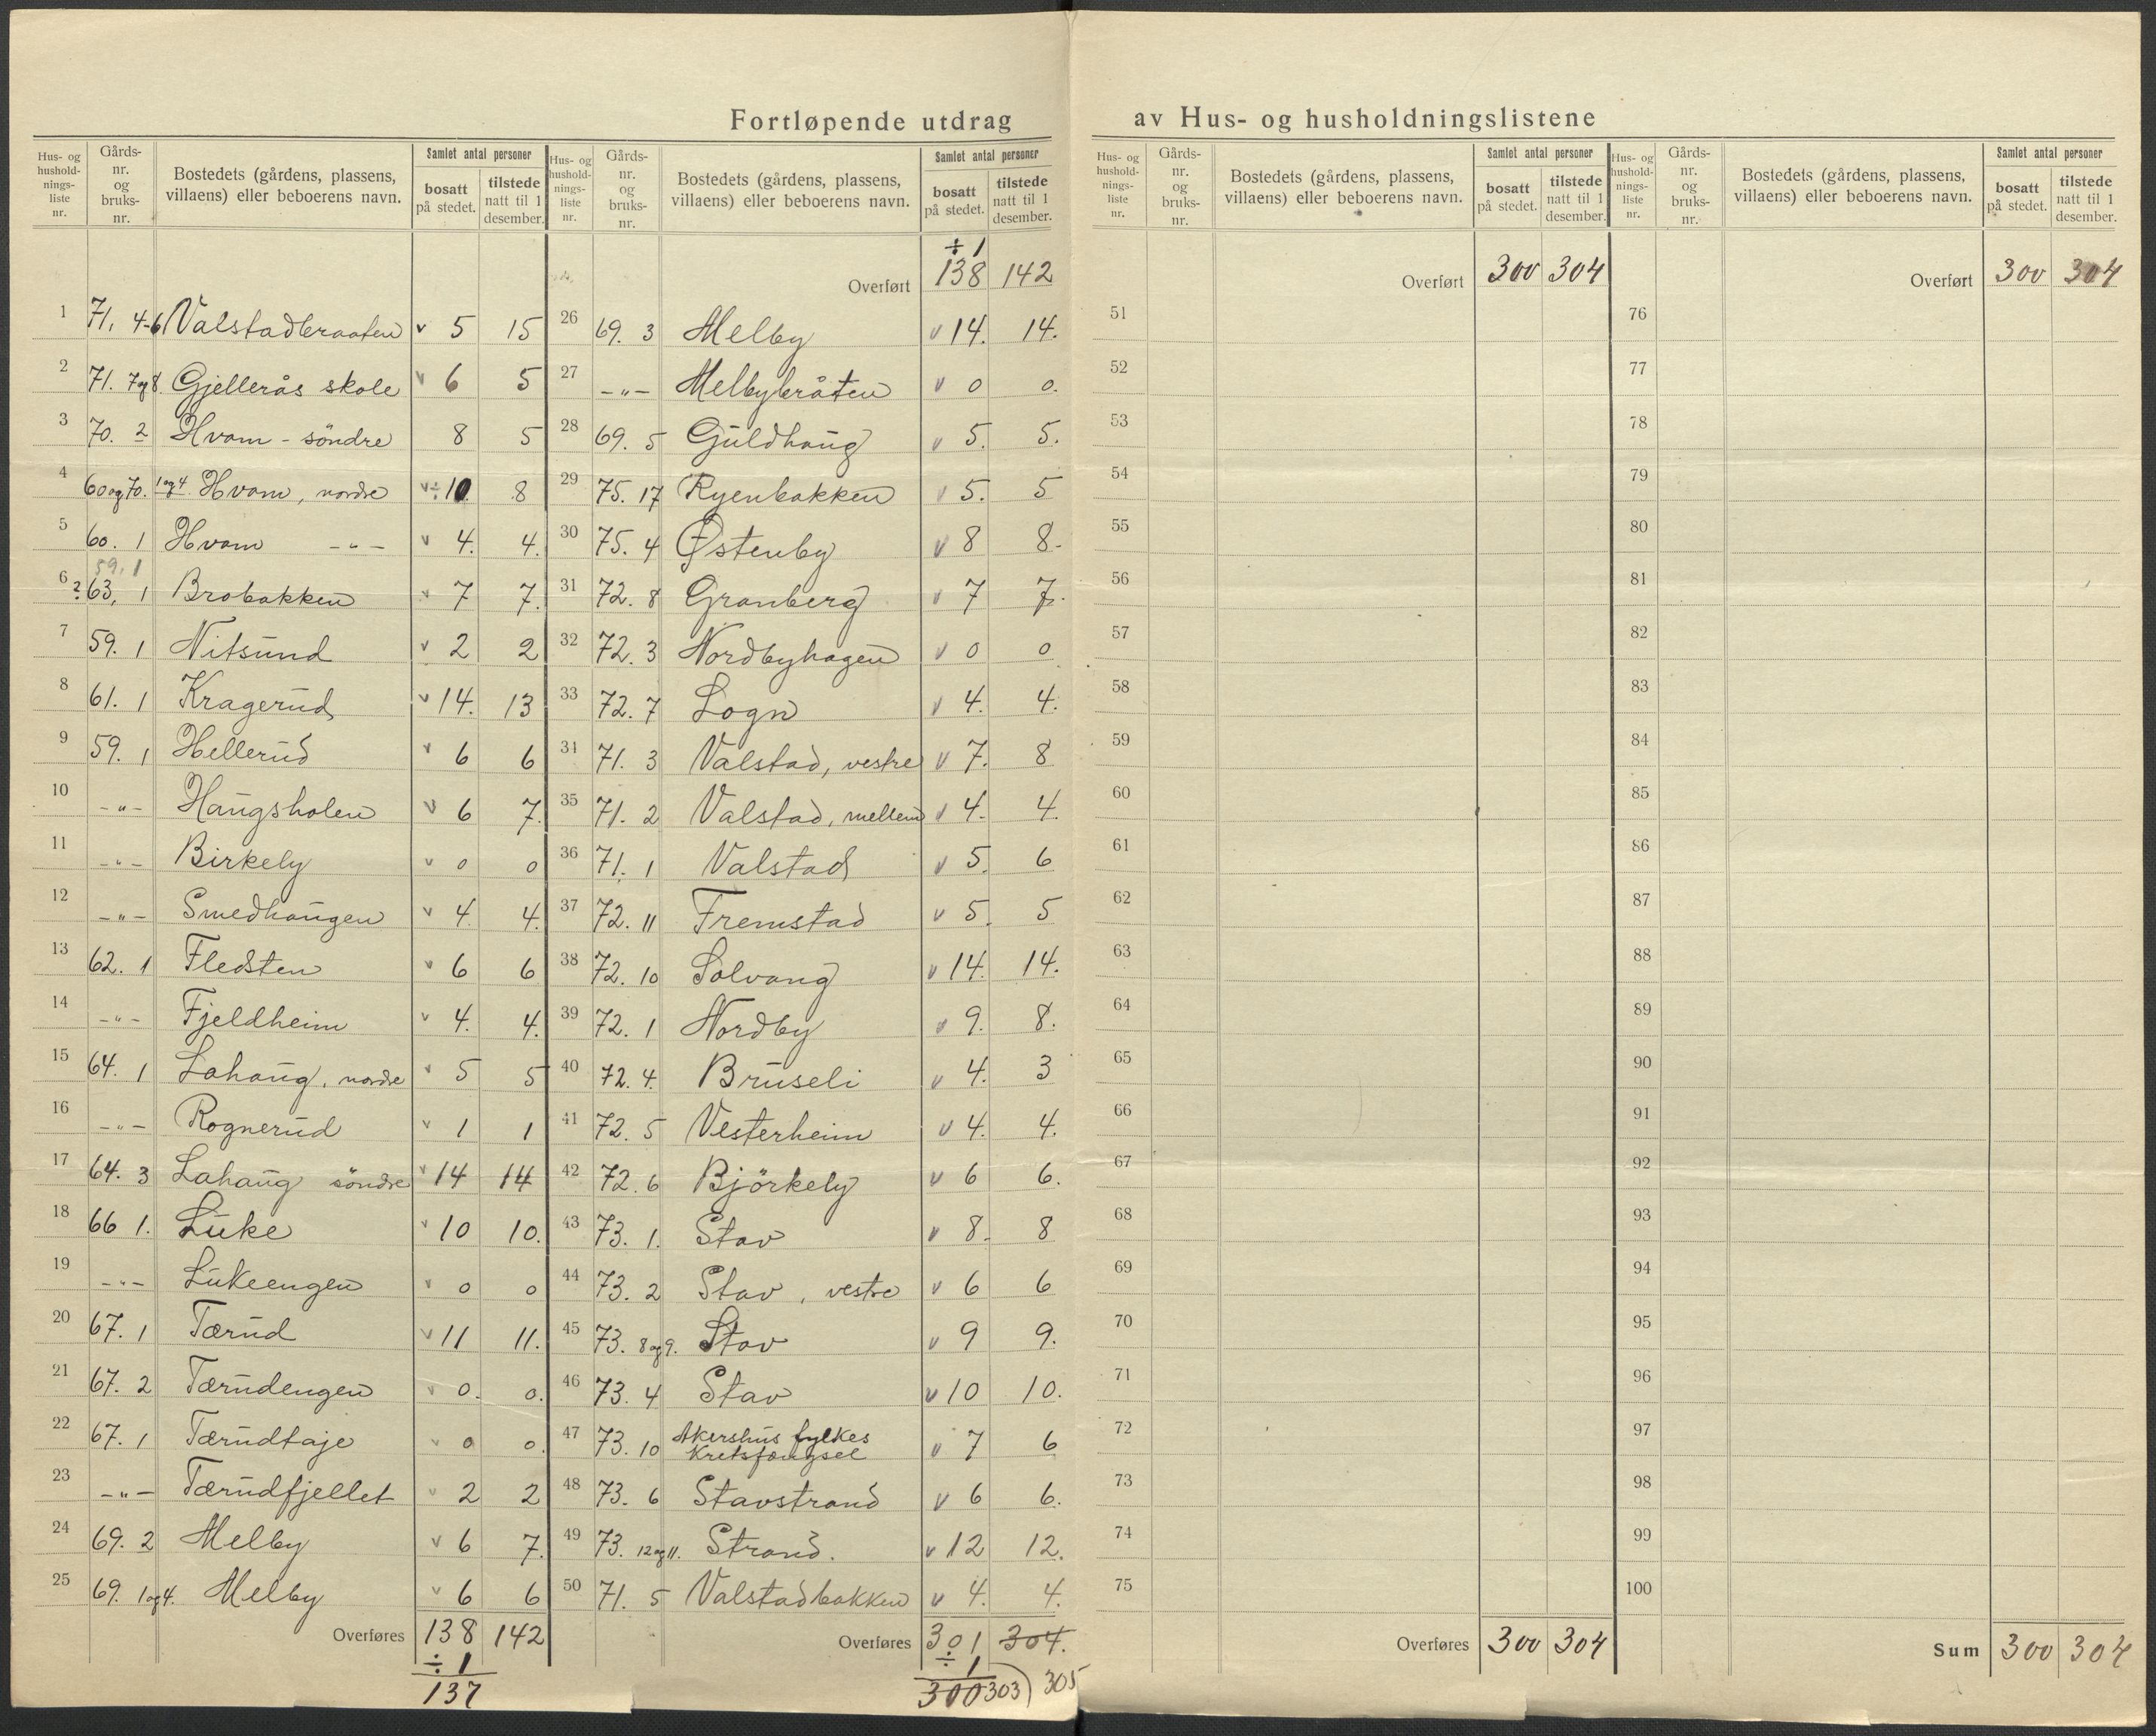 Fortløpende utdrag av Hus- og husholdningslistene
Hus- og husholdnings-liste nr. | Gårds-nr. og bruks-nr. | Bostedets (gårdens, plassens, villaens) eller beboerens navn. | Samlet antal personer | bosatt på stedet. | tilstede natt til 1 desember.
1 71, 4-6 Valstadbraaten v 5 15
2 71. 7og8. Gjellerås skole v 6 5
3 70. 2 Hvam - söndre 8 5
4 60og70. 1og4 Hvam, nordre v ÷10. 8
5 60. 1 Hvam -"- v 4. 4.
59,1
6 ? 63, 1 Brobakken v 7 7.
7 59. 1 Nitsund v 2 2
8 61. 1 Kragerud v 14. 13
9 59. 1 Hellerud v 6 6
10 -"- Haugsholen v 6 7.
11 -"- Birkely v 0 0
12 -"- Smedhaugen v 4. 4.
13 62. 1 Fledsten v 6 6
14 -"- Fjeldheim v 4. 4.
15 64. 1 Lahaug, nordre v 5 5
16 -"- Rognerud v 1 1
17 64. 3 Lahaug söndre v 14 14
18 66 1. Luke v 10 10.
19 -"- Lukeengen v 0 0
20 67. 1 Tærud v 11 11.
21 67. 2 Tærudengen v 0. 0.
22 67. 1 Tærudtaje v 0 0.
23 -"- Tærudfjellet v 2 2
24 69. 2 Melby v 6 7.
25 69. 1og4. Melby v 6 6
Overføres 138 142
÷ 1
137
Hus- og husholdnings-liste nr. | Gårds-nr. og bruks-nr. | Bostedets (gårdens, plassens, villaens) eller beboerens navn. | Samlet antal personer | bosatt på stedet. | tilstede natt til 1 desember.
÷ 1
Overført 138 142
26 69. 3 Melby v 14. 14.
27 -"- Melbybråten v 0 0.
28 69. 5 Guldhaug v 5. 5.
29 75. 17 Ryenbakken v 5. 5
30 75. 4 Østenby v 8 8.
31 72. 8 Granberg v 7 7.
32 72. 3 Nordbyhagen v 0 0
33 72. 7 Logn v 4. 4.
34 71. 3 Valstad, vestre v 7. 8
35 71. 2 Valstad, mellem v 4. 4.
36 71. 1 Valstad v 5. 6
37 72. 11 Fremstad v 5. 5
38 72. 10 Solvang v 14. 14.
39 72. 1 Nordby v 9. 8.
40 72. 4. Bruseli v 4. 3
41 72. 5 Vesterheim v 4. 4.
42 72. 6 Björkely v 6 6.
43 73. 1. Stav v 8. 8
44 73. 2 Stav, vestre v 6 6
45 73. 8og9. Stav v 9 9.
46 73. 4 Stav v 10 10.
47 73. 10 Akershus fylkes
Kretsfængsel v 7 6
48 73. 6 Stavstrand v 6 6.
49 73. 12og11. Strand. v 12 12.
50 71. 5 Valstadbakken v 4. 4.
Overføres 301 304.
÷ 1
300 303) 305
Hus- og husholdnings-liste nr. | Gårds-nr. og bruks-nr. | Bostedets (gårdens, plassens, villaens) eller beboerens navn. | Samlet antal personer | bosatt på stedet. | tilstede natt til 1 desember.
Overført 300 304
51
52
53
54
55
56
57
58
59
60
61
62
63
64
65
66
67
68
69
70
71
72
73
74
75
Overføres 300 304
Hus- og husholdnings-liste nr. | Gårds-nr. og bruks-nr. | Bostedets (gårdens, plassens, villaens) eller beboerens navn. | Samlet antal personer | bosatt på stedet. | tilstede natt til 1 desember.
Overført 300 304
76
77
78
79
80
81
82
83
84
85
86
87
88
89
90
91
92
93
94
95
96
97
98
99
100
Sum 300 304